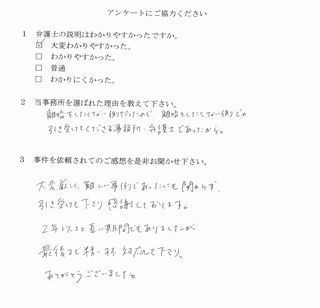 アンケートにご協力ください
1 弁護士の説明はわかりやすかったですか。
☑ 大変わかりやすかった。
□ わかりやすかった。
□ 普通
□ わかりにくかった。
2 当事務所を選ばれた理由を教えて下さい。
離婚をしたくない側だったので 離婚をしたくない側での
引き受けてくださる事務所・弁護士であったから。
3 事件を依頼されてのご感想を是非お聞かせ下さい。
大変厳しく、難しい事例であったにも関わらず、
引き受けて下さり 感謝しております。
2年以上と長い期間でもありましたが
最後まで精一杯 対応して下さり、
ありがとうございました。